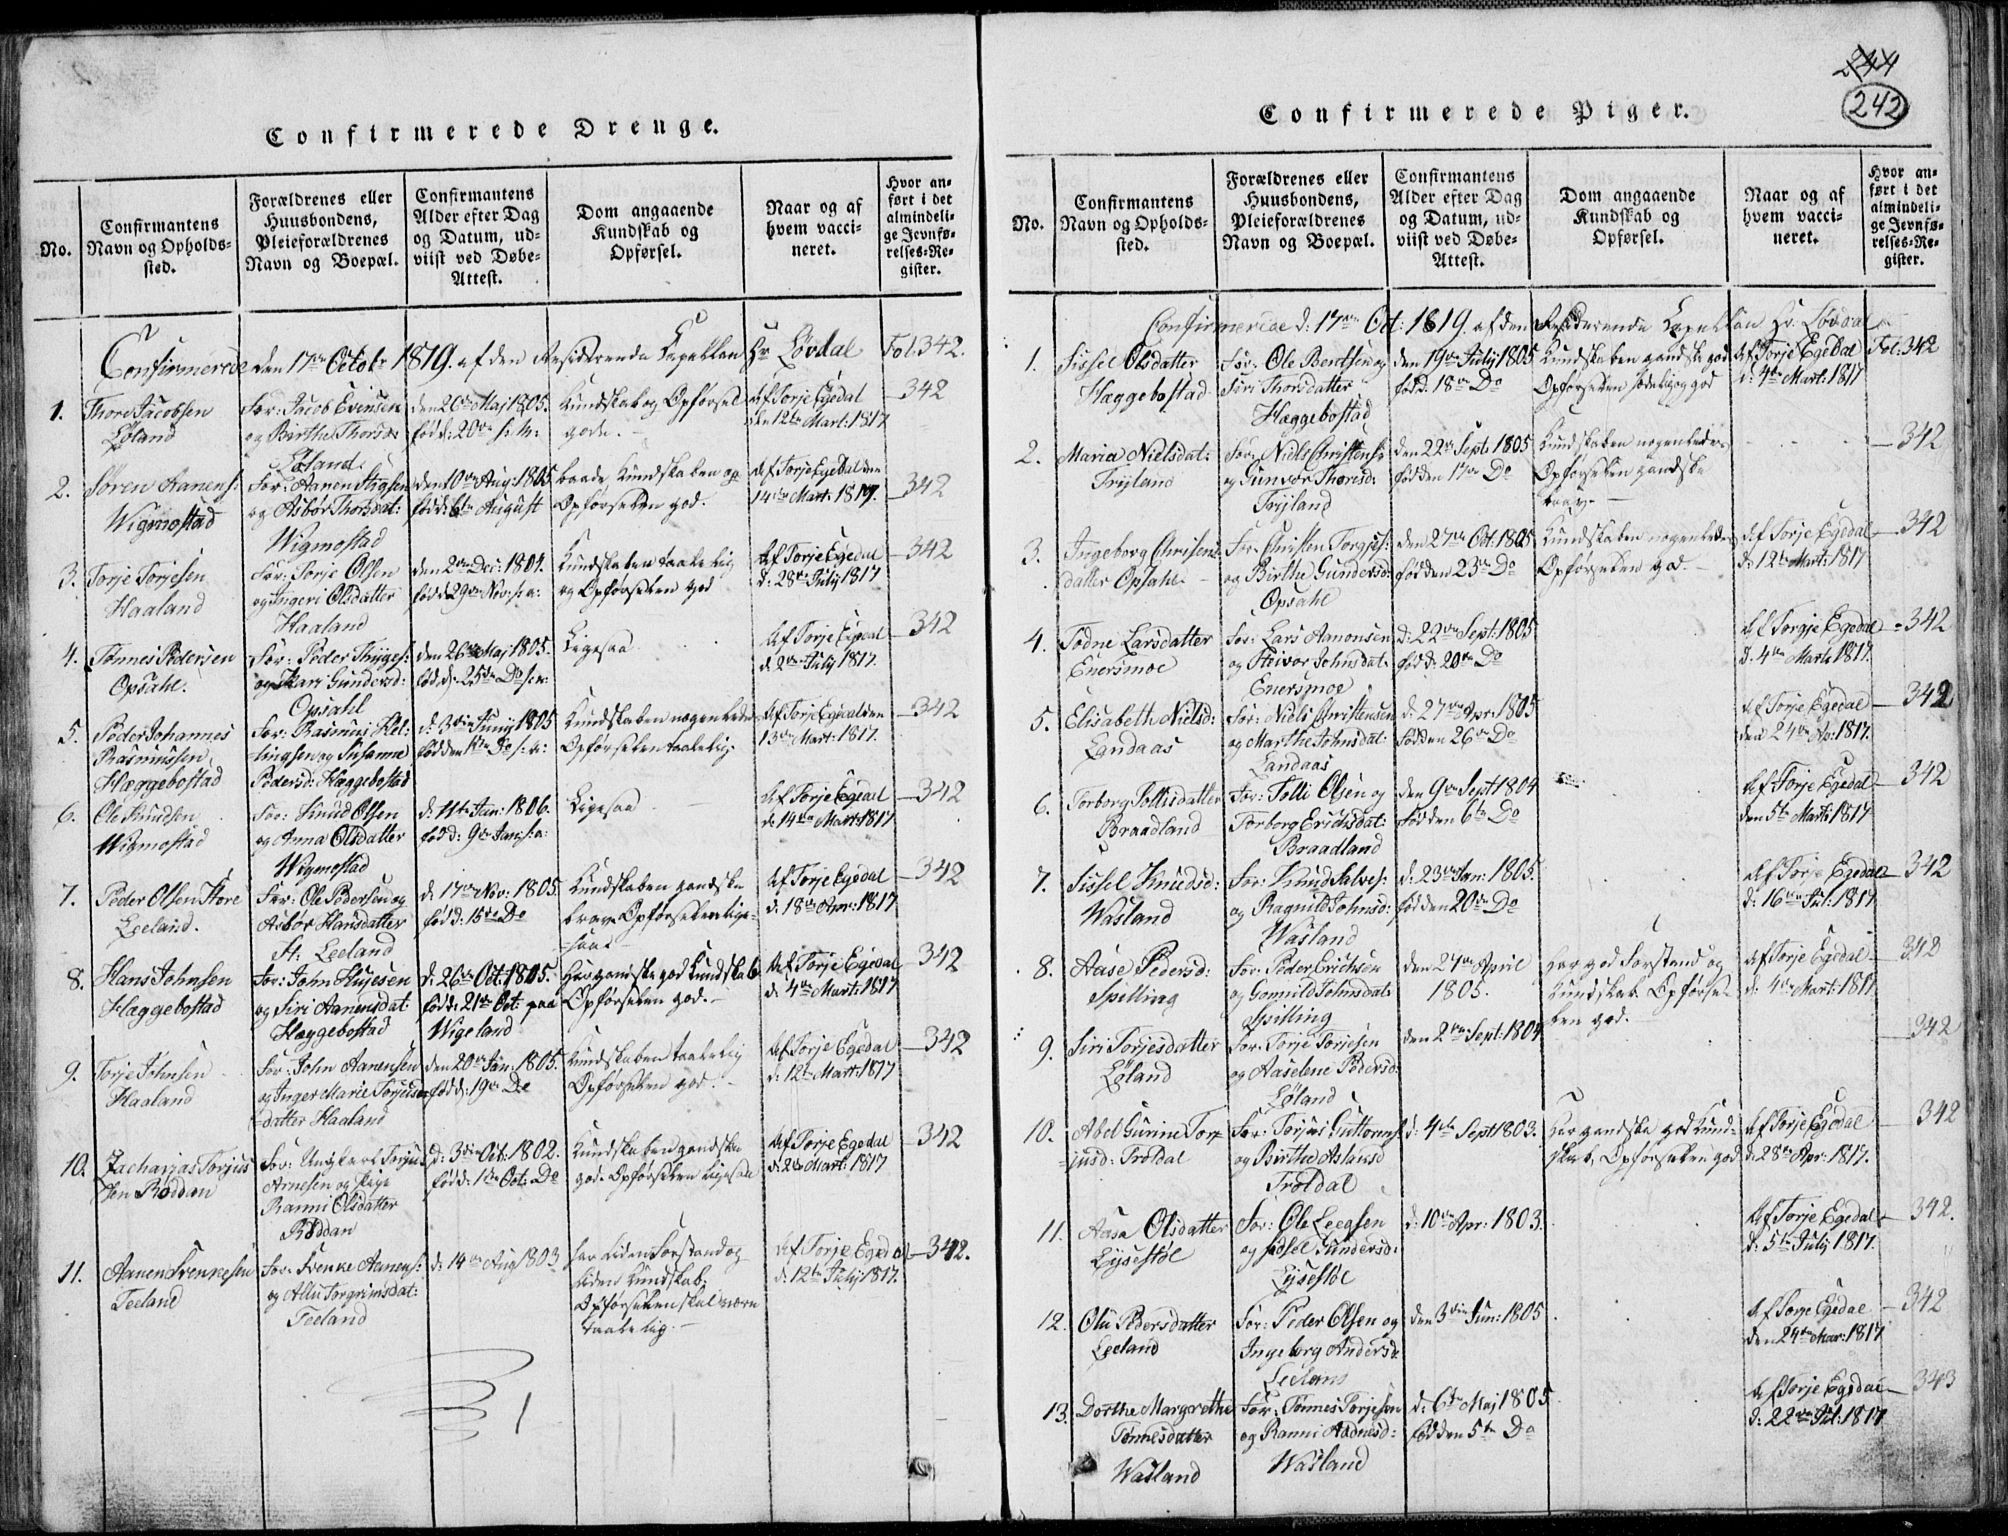 244
242
Confirmerede Drenge.
No.
Confirmantens
Navn og Opholds-
sted.
Forældrenes eller
Huusbondens,
Pleieforældrenes
Navn og Boepæl.
Confirmantens
Alder efter Dag
og Datum, ud-
viist ved Døbe-
Attest.
Dom angaaende
Kundskab og
Opførsel.
Naar og af
hvem vacci-
neret.
Hvor an-
ført i det
almindeli-
ge Jevnfø-
relses-Re-
gister.
Confirmerede den 17de Octobr 1819. af den Residerende Capellan Hr Løvdal Fol. 342.
1.
Thore Jacobsen
Løland
For: Jacob Evensen
og Birthe Thorsd:
Løland.
den 26de Maj 1805.
fød d: 20de s: M:
Kundskab og Opførsel
gode.
Af Torje Egedal
den 12te Mart: 1817
342
2.
Søren Aanens:
Wigmostad
For: Aanen Stigsen
og Asbør Thorsdat:
Wigmostad
den 10de Aug: 1805
fød d: 6te August
baade Kundskaben og
Opførselen god.
Af Torje Egedal den
14de Mart: 1817.
342
3.
Torje Torjesen
Haaland
For: Torje Olsen
og Ingeri Olsdatter
Haaland
den 2den Dec: 1804.
fød d 29de Nov: s: a:
Kundskaben taalelig
og Opførselen god
Af Torje Egedal
d: 28de July 1817
342
4.
Tønnes Pedersen
Opsahl.
For: Peder Thyges:
og Mari Gundersd:
Opsahl
den 26de Maj 1805.
fød d: 25de Do s: a:
Ligesaa
Af Torje Egedal
d: 2den July 1817.
342
5.
Peder Johannes
Rasmussen,
Hæggebostad
For: Rasmus Hel-
lingsen og Susanne
Pedersd: Hæggebostad
d: 3die Juny 1805
fød den 1ste Do s: a:
Kundskaben nogenledes
Opførselen taalelig.
Af Torje Egedal den
13de Mart: 1817.
342
6.
Ole Knudsen
Wigmostad
For: Knud Olsen
og Anna Olsdatter
Wigmostad
d: 11te Jan: 1806.
fød d: 9de Jan: s: a:
Ligesaa
Af Torje Egedal
d: 14de Mart: 1817
342
7.
Peder Olsen Store
Leeland.
For: Ole Pedersen og
Asbør Hansdatter
St: Leeland
d: 17de Nov: 1805.
fød d: 15de Do
Kundskaben gandske
brav Opførselen lige-
saa
Af Torje Egedal
d: 18de Apr: 1817
342
8.
Hans Johnsen
Hæggebostad
For: John
og Siri Aanensdat:
Hæggebostad
d: 26de Oct: 1805.
fød d: 21de Oct: paa
Wigeland
Har gandske god Kundskab
Opførselen god.
Af Torje Egedal
d: 4de Mart: 1817
342
9.
Torje Johnsen
Haaland
For: John Aanensen
og Inger Marie Torjuses
datter Haaland
den 20de Jan: 1805.
fød d: 19de Do
Kundskaben taalelig
Opførselen god.
Af Torje Egedal
d: 12te Mart: 1817
342
10.
Zacharias Torjus
sen Røddan
For: Ungkarl Torjus
Arnesen og Pige
Ranni Olsdatter
Røddan
d: 3die Oct: 1802.
fød d: 1ste Oct: Do
Kundskaben gandske
god. Opførselen ligesaa
Af Torje Egedal
d: 2den Mart: 1817
342
11.
Aanen Svenkesen
Teeland
For: Svenke Aanens:
og Allu Torgrimsdat:
Teeland
d: 14de Aug 1803
har liden Forstand og
liden Kundskab;
Opførselen skal være
taalelig.
Af Torje Egedal
d: 12te July 1817.
342.
Confirmerede Piger.
No.
Confirmantens
Navn og Opholds-
sted.
Forældrenes eller
Huusbondens,
Pleieforældrenes
Navn og Boepæl.
Confirmantens
Alder efter Dag
og Datum, ud-
viist ved Døbe-
Attest.
Dom angaaende
Kundskab og
Opførsel.
Naar og af
hvem vacci-
neret.
Hvor an-
ført i det
almindeli-
ge Jevnfø-
relses-Re-
gister.
Confirmerede d: 17de Oct: 1819. af den Residerende Capellan Hr. Løvdal
1.
Sissel Olsdatter
Hæggebostad
For: Ole Bentsen og
Siri Thorsdatter
Hæggebostad
den 19de July 1805
fød d. 18de Do
Kundskaben gandske god
Opførselen sædelig og god
Af Torje Egedal
d: 4de Mart: 1817
Fol: 342
2.
Maria Nielsdat:
Tryland
For: Niels Christens:
og Gunvor Thorisd:
Tryland
den 22de Sept: 1805
fød den 17de Do
Kundskaben nogenledes
Opførselen gandske
brav.
342
3.
Ingeborg Christens
datter Opsahl
For: Christen Torgjes:
og Birthe Gundersd:
Opsahl
den 27de Oct: 1805
fød den 23de Do
Kundskaben nogenledes
Opførselen god
Af Torje Egedal
d: 12te Mart: 1817
342
4.
Todne Larsdatter
Enersmoe
For: Lars Aanonsen
og Steivor Johnsdat:
Enersmoe
d: 22de Sept: 1805
fød d: 20de Do
Af Torgje Egedal
d. 4de Mart: 1817.
342
5.
Elisabeth Nielsd:
Landaas
For: Niels Christensen
og Marthe Johnsdat:
Landaas
d: 27de Apr: 1805
fød den 26de Do
Af Torje Egedal
den 24de Ap: 1817.
342
6.
Torborg Tollisdatter
Braadland
For: Tolli Olsen og
Torborg Erichsdat:
Braadland
den 9de Sept 1804
fød den 6te Do
Af Torje Egedal
den 5te Mart: 1817
342
7.
Sissel Knudsd:
Wasland
For: Knud Salves:
og Ragnild Johnsd:
Wasland
d: 23de Jan: 1805.
fød den 20de Do
Af Torje Egedal
d: 16de Jul: 1817
342
8.
Aase Pedersd:
Spilling
For: Peder Erichsen
og Gomnild Johnsdat:
Spilling
den 27de April
1805.
Har god Forstand og
Kundskab. Opførse-
len god.
Af Torje Egedal
d: 4de Mart: 1817
342
9.
Siri Torjesdatter
Løland
For: Torje Torjesen
og Aaselene Pedersd:
Løland
den 2den Sept: 1804
342
10.
Abel Gurine Tor-
jusd: Troldal
For: Torjus Guttorms:
og Birthe Aslausd
Troldal
d: 4de Sept 1803.
Har gandske god Kund-
skab, Opførselen god
Af Torje Egedal
d: 28de Apr: 1817.
342
11.
Aasa Olsdatter
Lysestøl
For: Ole Leegsen
og Sidsel Gundersd:
Lysestøl
d: 10de Apr: 1803.
Af Torje Egedal
d: 5te July 1817.
342.
12.
Olu Pedersdatter
Leeland
For: Peder Olsen og
Ingeborg Andersd:
Leeland
den 3die Jun: 1805
Af Torje Egedal
den 24de Mar: 1817
342
13.
Dorthe Margrethe
Tønnesdatter
Wasland
For: Tønnes Torjesen
og Ranni Aadnesd:
Wasland
d: 6te Maj 1805
fød den 5te Do
Af Torje Egedal
d: 22de Jul: 1817
343